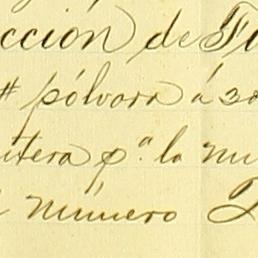 cción de Fu
# pólvora á 30
itera pª. la mi
número